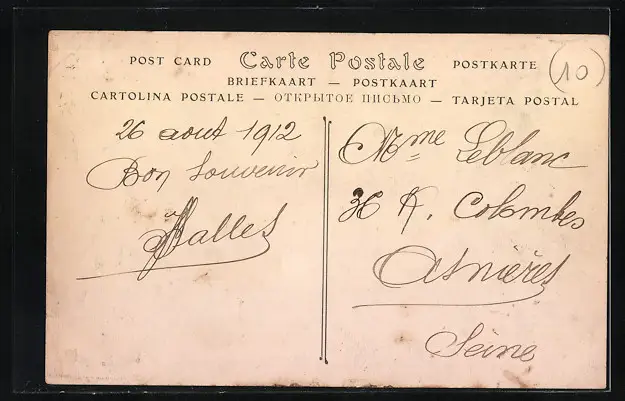 POST CARD Carte Postale POSTKARTE
(10)
BRIEFKAART — POSTKAART
CARTOLINA POSTALE — ОТКРЫТОЕ ПИСЬМО — TARJETA POSTAL
26 aout 1912
Bon Souvenir
Halles
Mme Leblanc
36 R. Colombes
Asnières
Seine